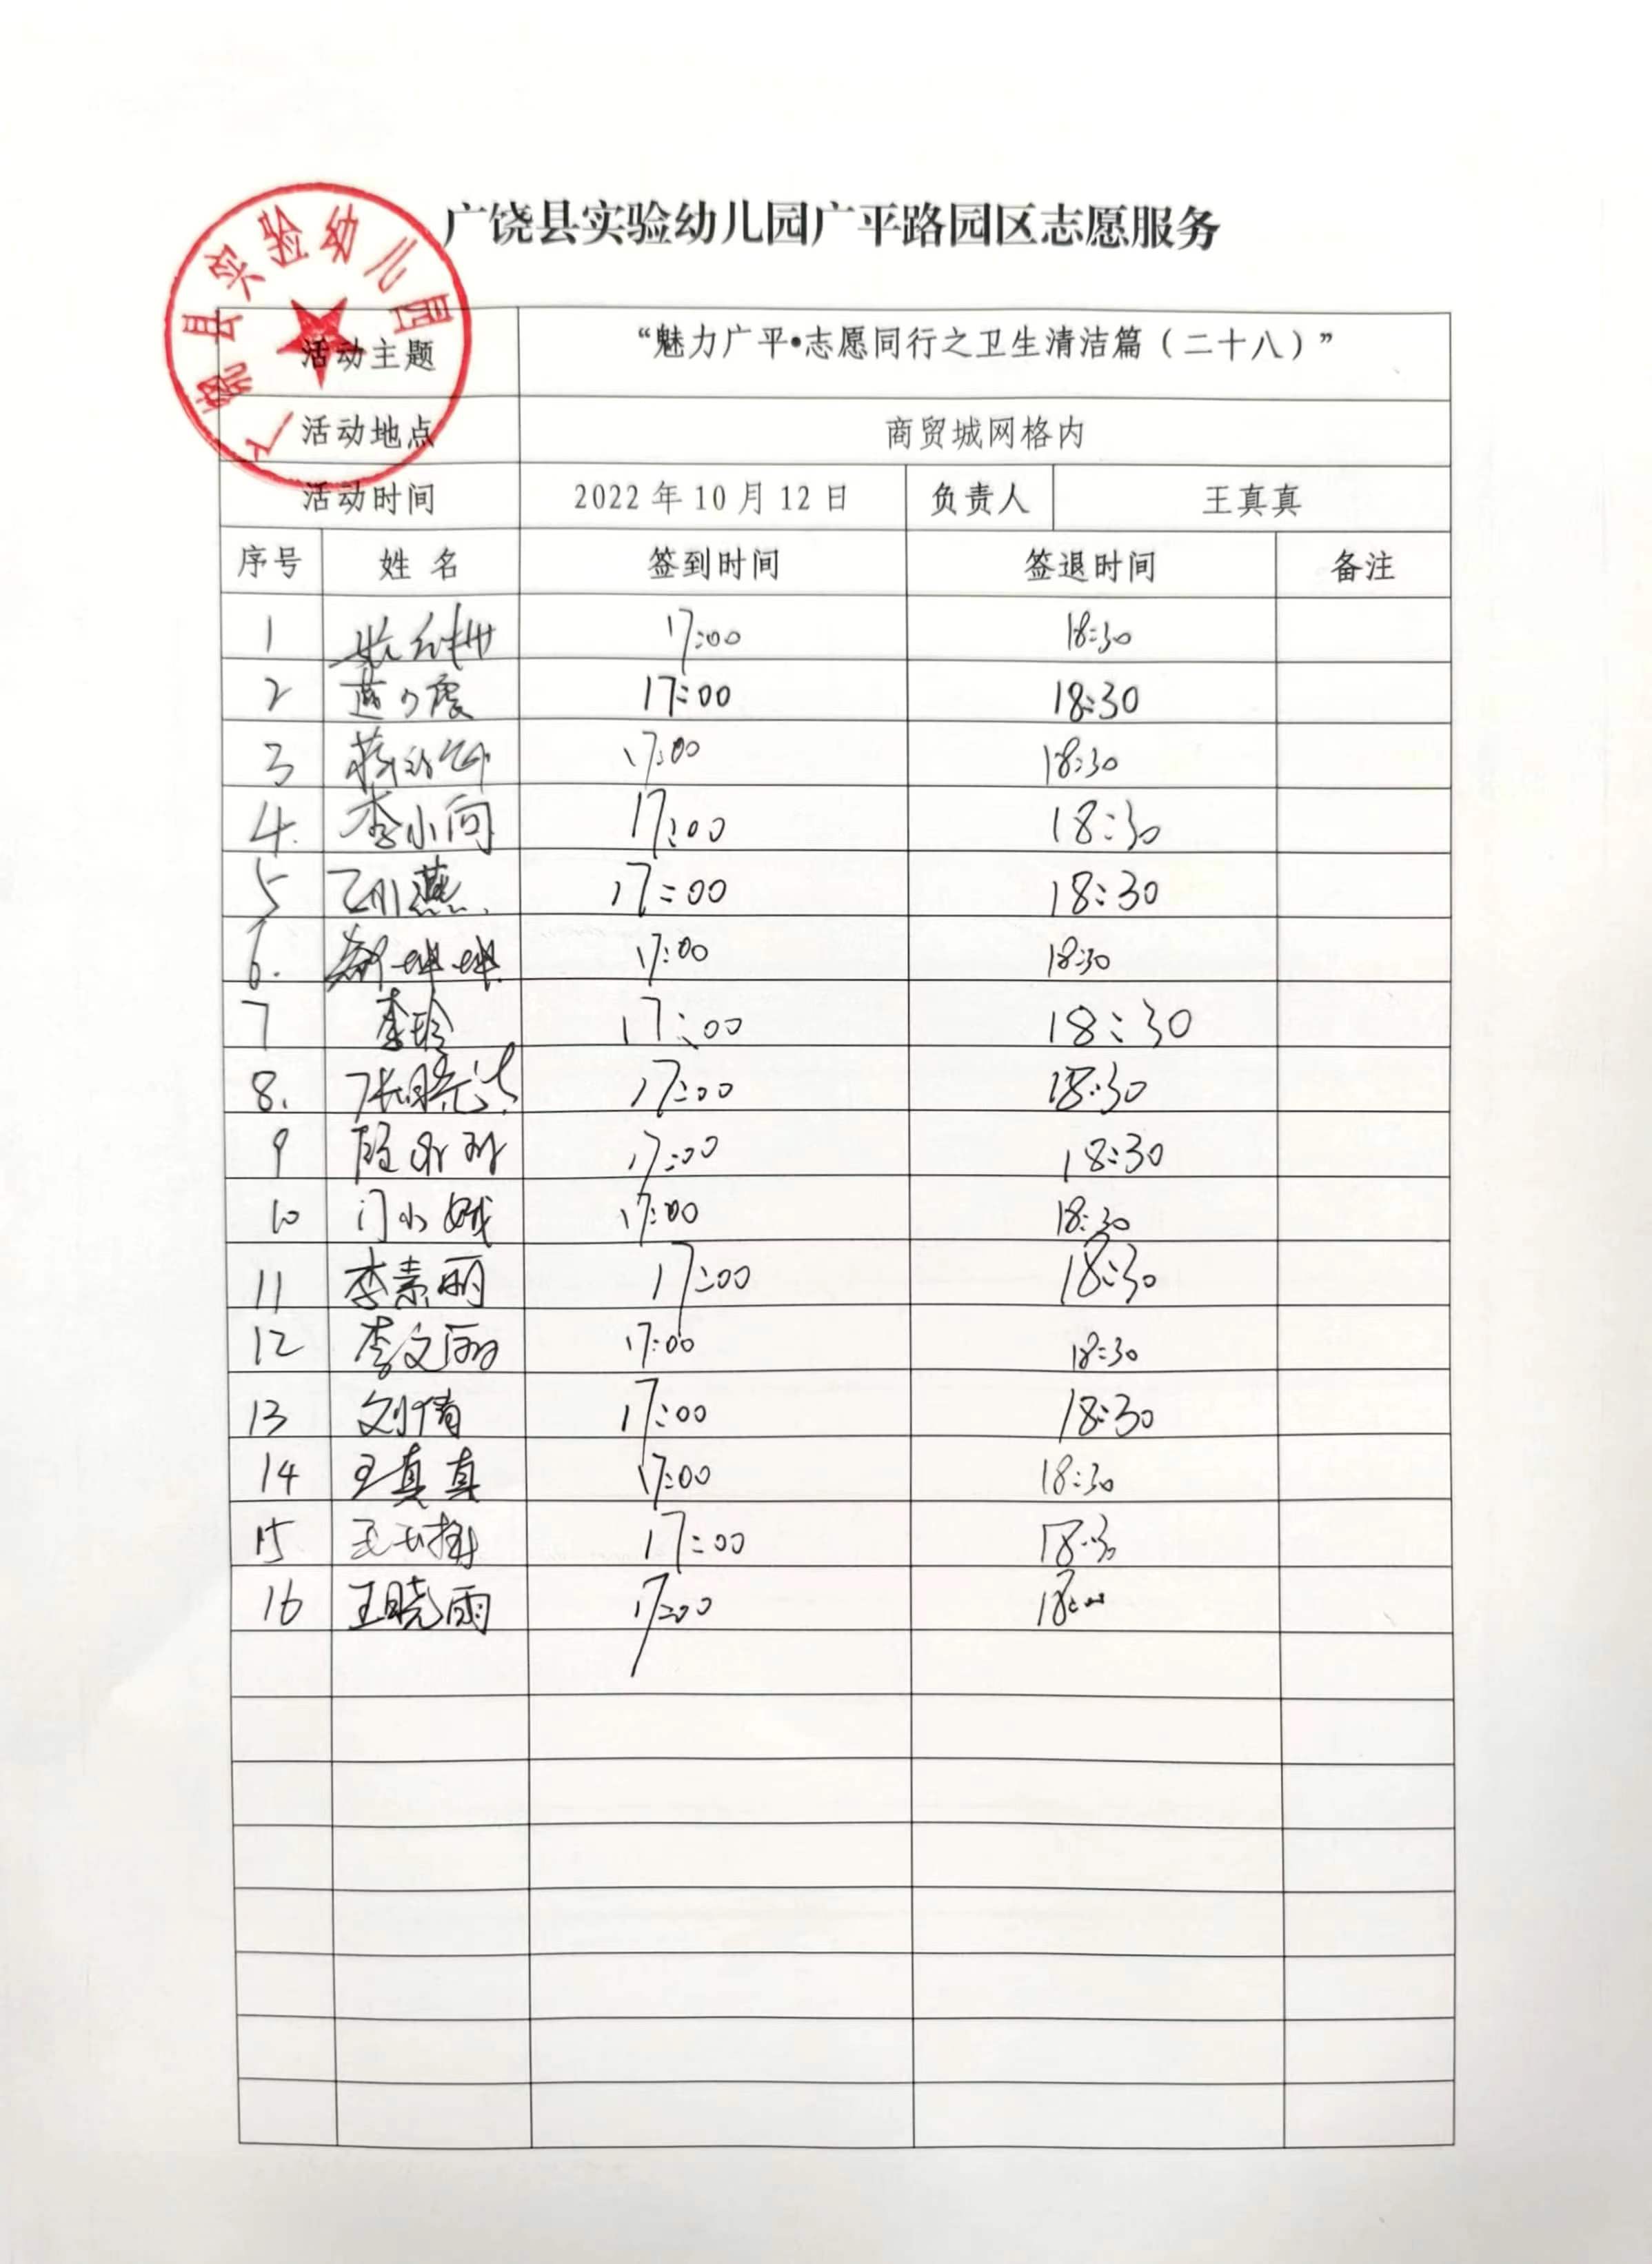 广饶县实验幼儿园广平路园区志愿服务
广饶县实验幼儿园
活动主题 “魅力广平•志愿同行之卫生清洁篇（二十八）”
活动地点 商贸城网格内
活动时间 2022年10月12日 负责人 王真真
序号 姓名 签到时间 签退时间 备注
1 17:00 18:30
2 17:00 18:30
3 17:00 18:30
4. 李小向 17:00 18:30
5 17:00 18:30
6. 17:00 18:30
7 李玲 17:00 18:30
8. 17:00 18:30
9 17:00 18:30
10 门小娥 17:00 18:30
11 李素丽 17:00 18:30
12 李文丽 17:00 18:30
13 刘倩 17:00 18:30
14 王真真 17:00 18:30
15 17:00 18:30
16 王晓雨 17:00